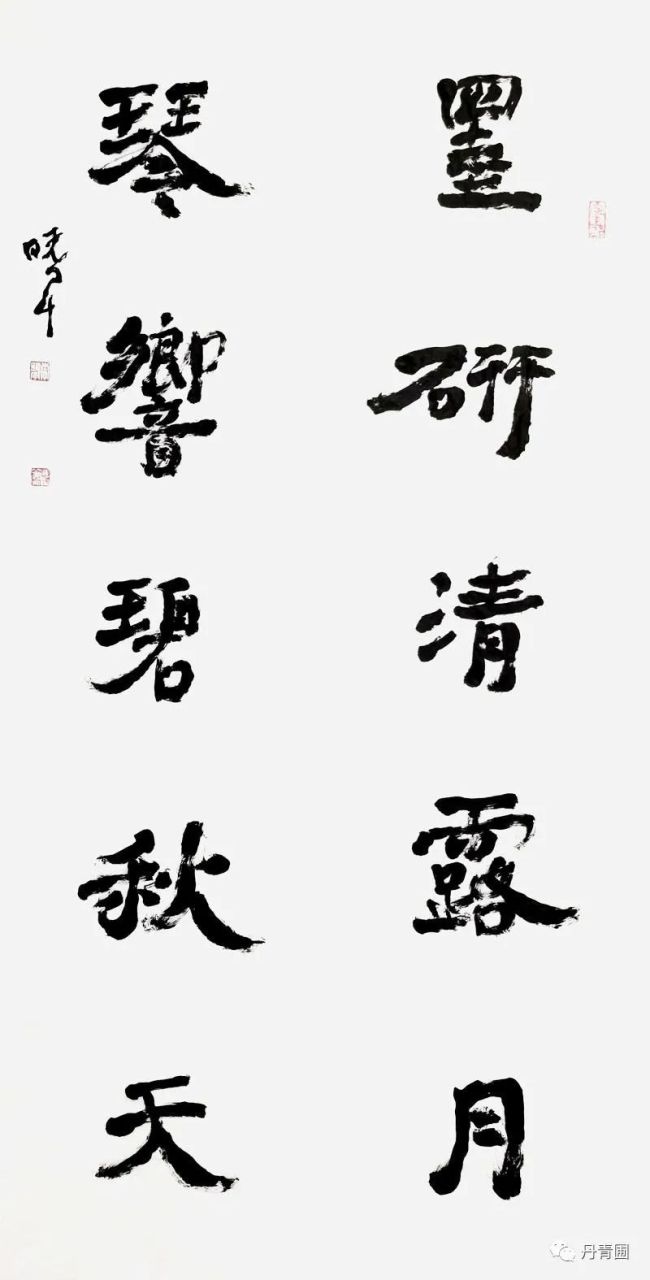 墨研清露月
琴響碧秋天
丹青圃